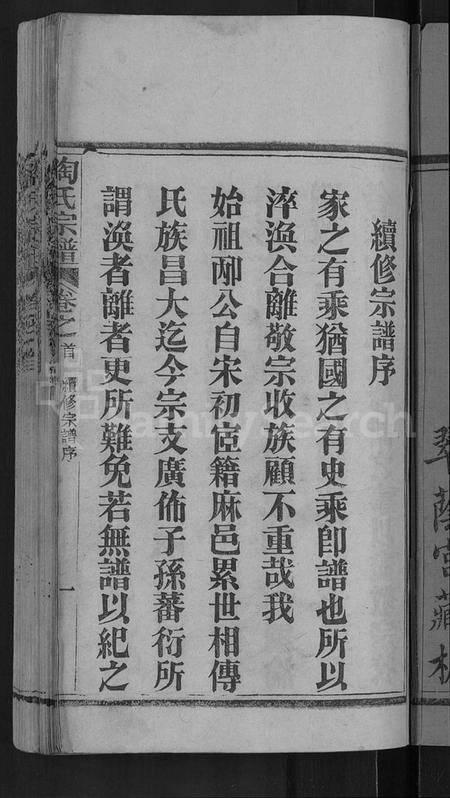 續修宗譜序
家之有乘猶國之有史乘卽譜也所以
淬渙合離敬宗收族顧不重哉我
始祖邴公自宋初宦籍麻邑累世相傳
氏族昌大迄今宗支廣佈子孫蕃衍所
謂渙者離者更所難免若無譜以紀之
陶氏宗譜 卷之首 續修宗譜序 一
藏板
FamilySearch